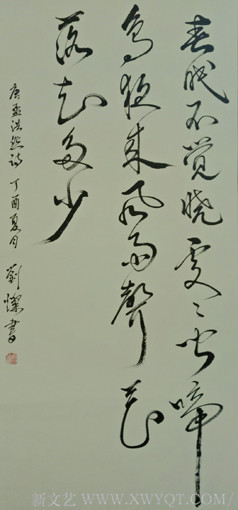 春眠不觉晓处〻闻啼
鸟夜来风雨聲花
落知多少
唐孟浩然诗 丁酉夏月 劉燦書
新文艺 WWW.XWYQT.COM/